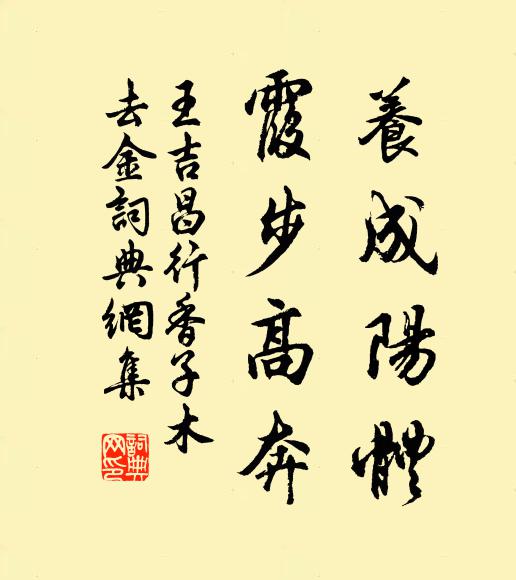 養成陽體
霞步高奔
王吉昌行香子木
去金詞典網集
詞典網印